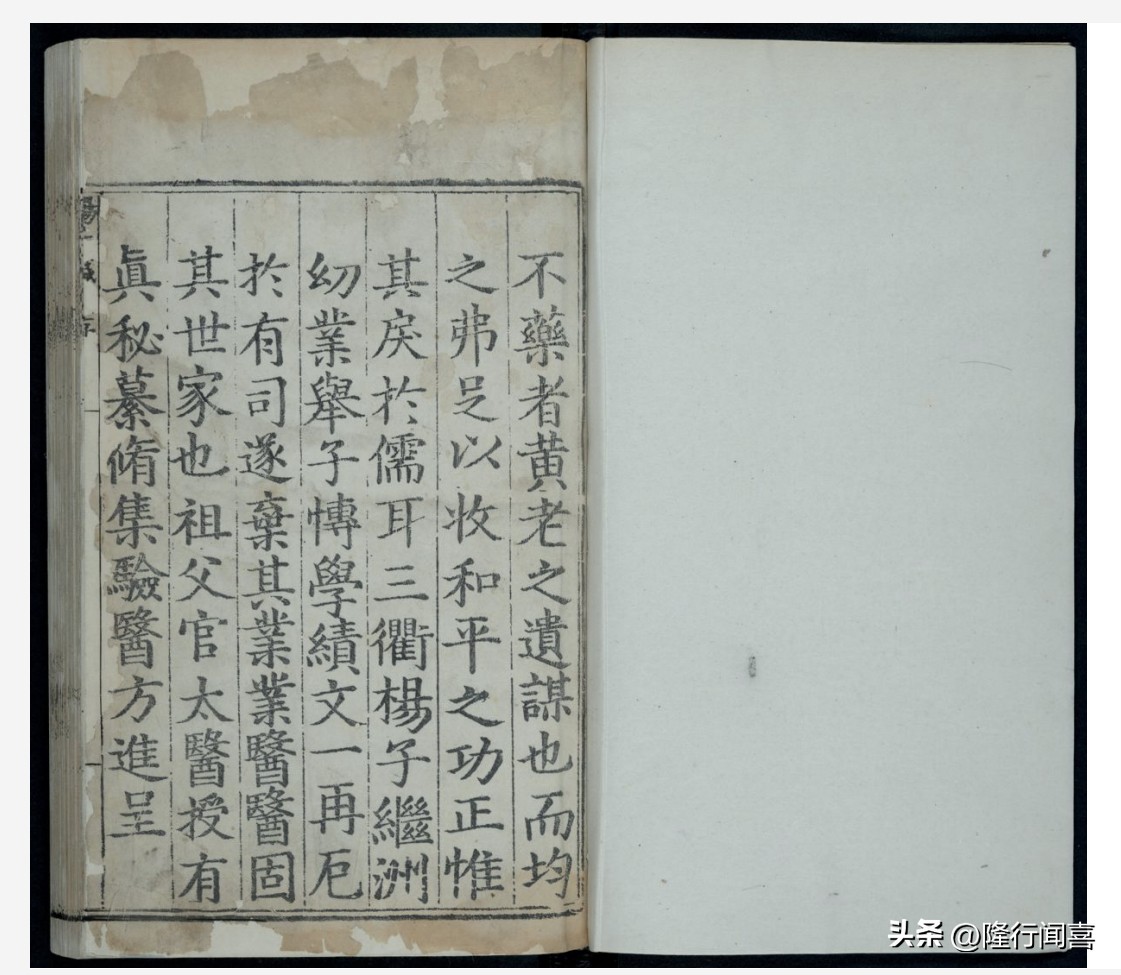 不藥者黄老之遺謀也而均
之弗足以收和平之功正惟
其戾於儒耳三衢楊子繼洲
幼業舉子慱學績文一再厄
於有司遂棄其業業醫醫固
其世家也祖父官太醫授有
眞秘纂脩集驗醫方進呈
头条 @隆行闻喜